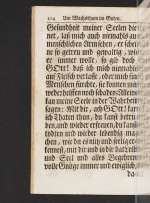 204 Vor Wachsthum im Guten.
Gesundheit meiner Seelen die-
net, laß mich auch niemahls auf
menschlichen Armsehen, er schei-
ne so getreu und gewaltig, wie
er immer wolle; so gib doch
GOtt! daß ich mich niemahls
auf Fleisch verlasse, oder mich für
Menschen fürchte, sie können mir
weder helffen noch schaden. Allein
kan meine Seele in der Wahrheit
sagen: Mit dir, ach GOtt! kan
ich Thaten thun, du kanst tödt-
en, und wieder erfreuen, du kanst
tödten und wieder lebendig ma-
chen, wo du einig und selig er-
kennest, mit dir und in dir hat Leib
und Seel und alles Begehren
volle Gnüge immer und ewiglich,
da-